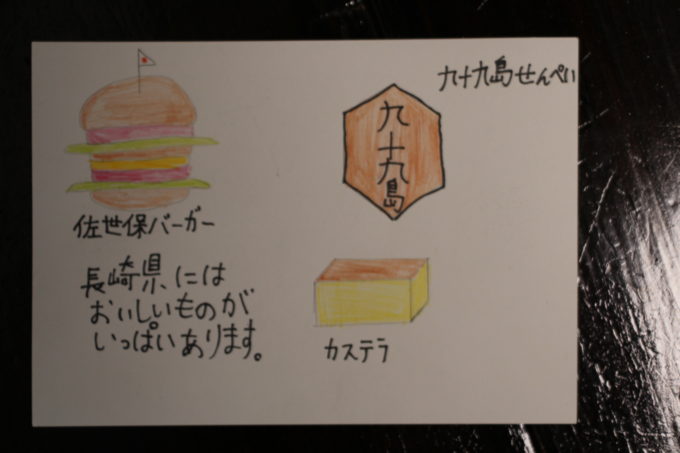 九十九島せんぺい
九十九島
佐世保バーガー
長崎県には
おいしいものが
いっぱいあります。
カステラ